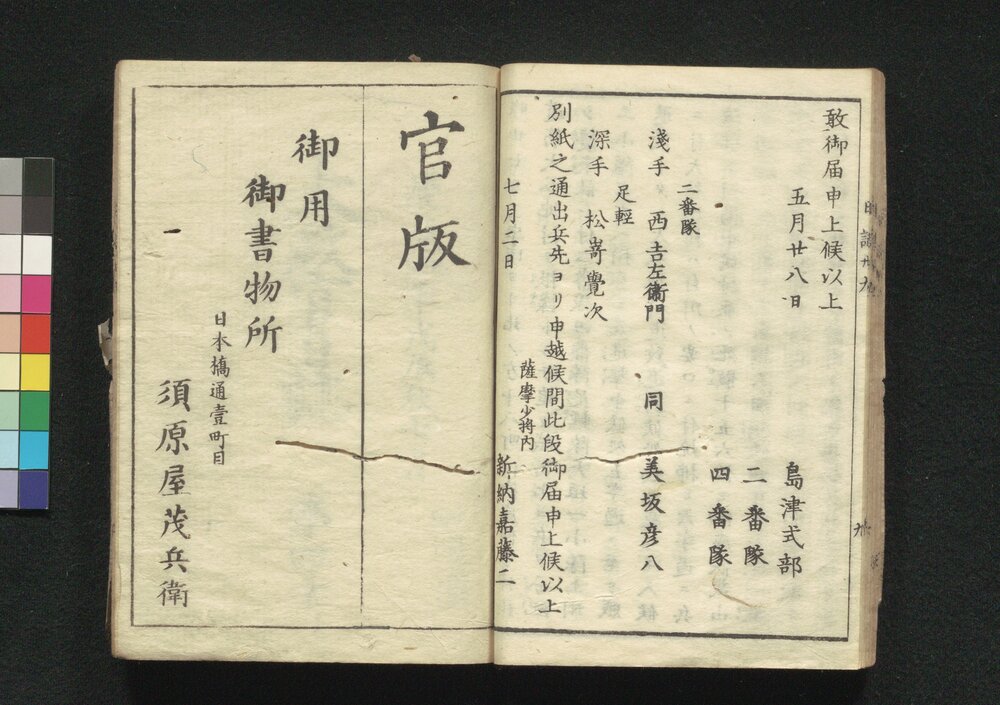 敢御届申上候以上
五月廿八日
島津式部
二番隊
四番隊
二番隊
淺手 西𠮷左衞門 同 美坂彦八
足輕
深手 松嵜覺次
別紙之通出兵先ヨリ申越候間此段御届申上候以上
七月二日 薩摩少将内 新納嘉藤二
官版
御用
御書物所
日本橋通壹町目
須原屋茂兵衛